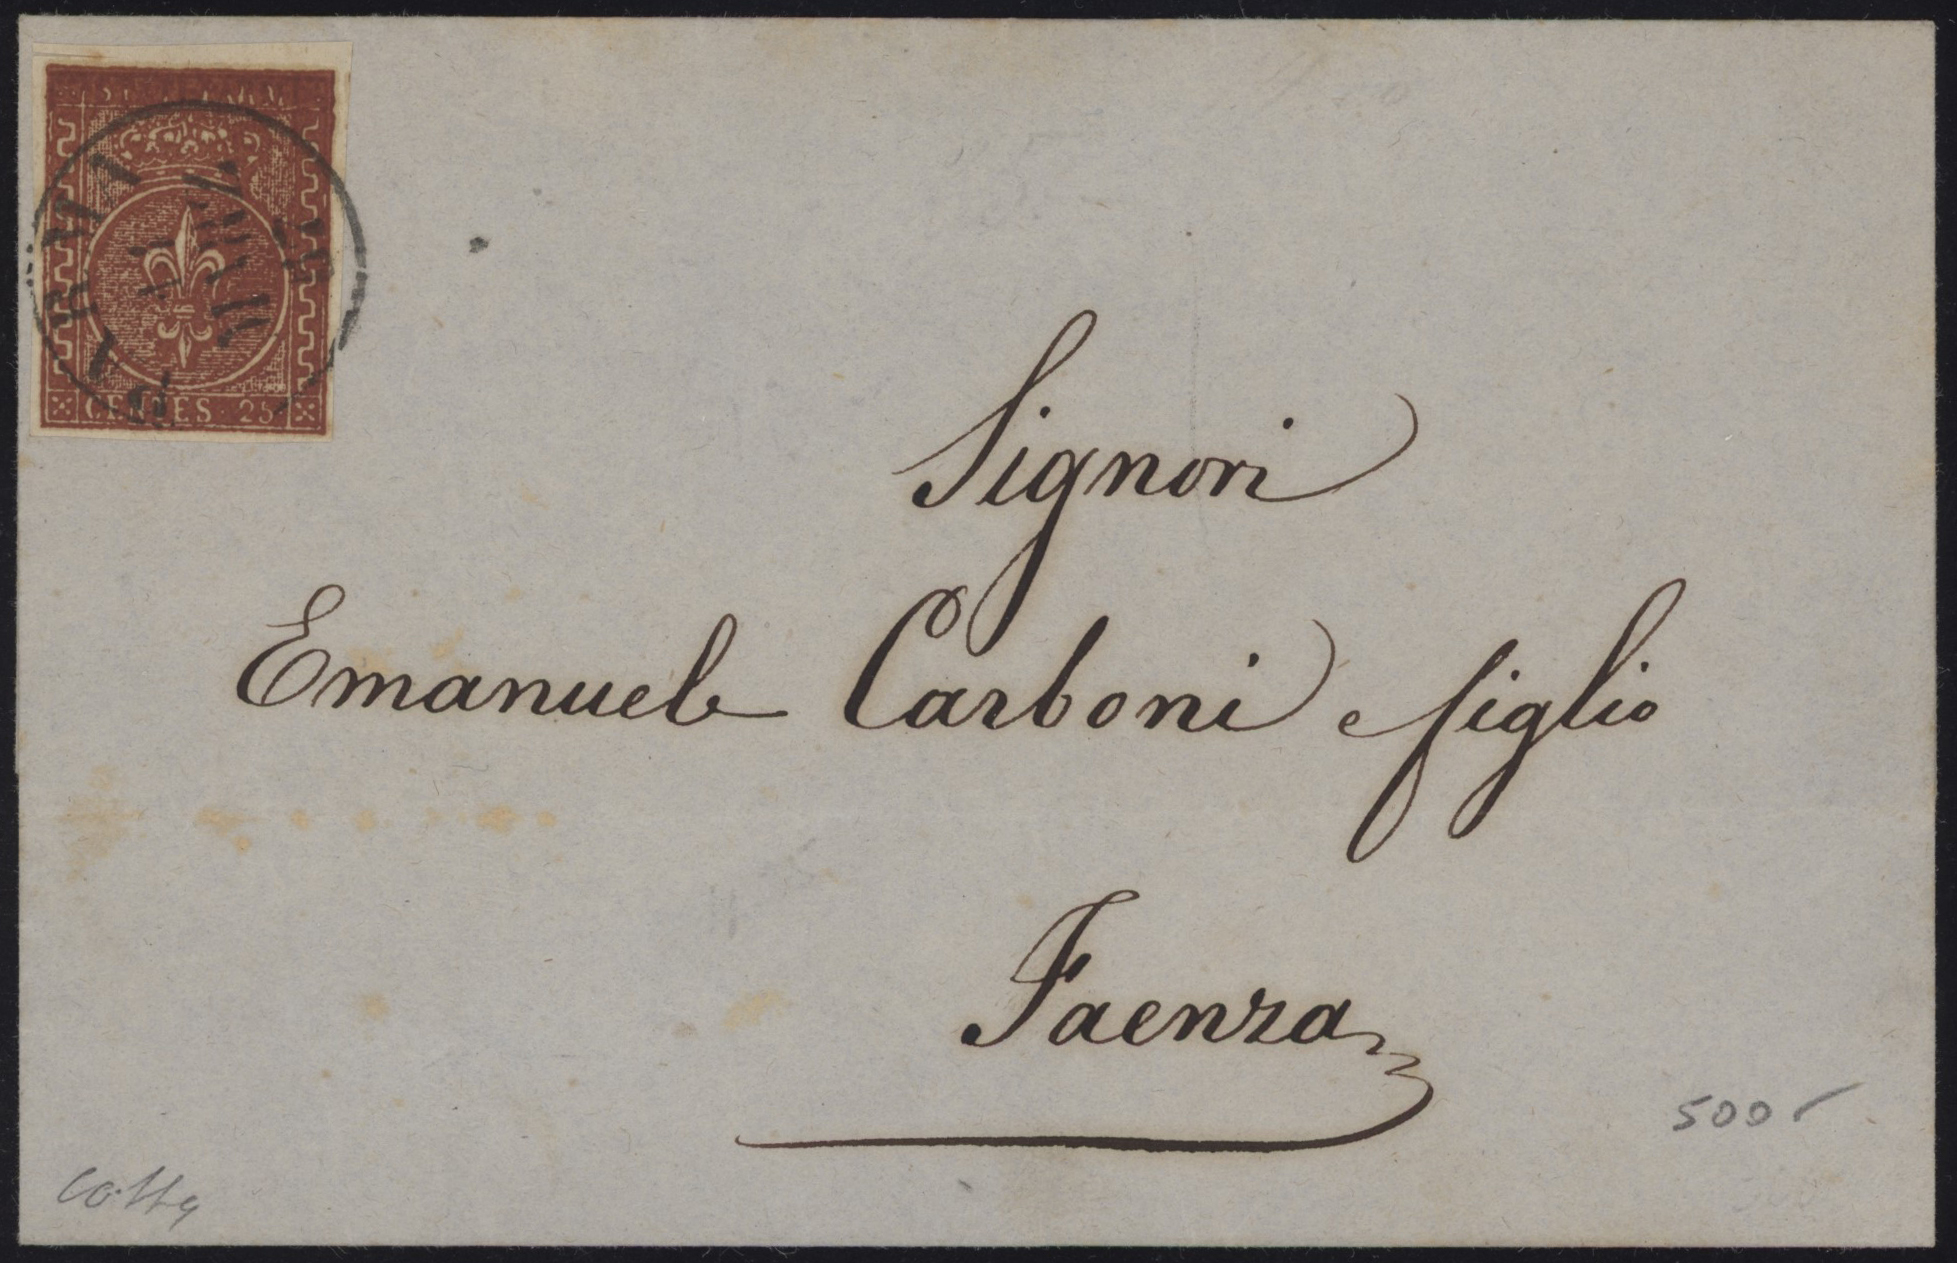 PARMA
CENTES. 25
Signori
Emanuele Carboni e figlio
Faenza
500
Cotta